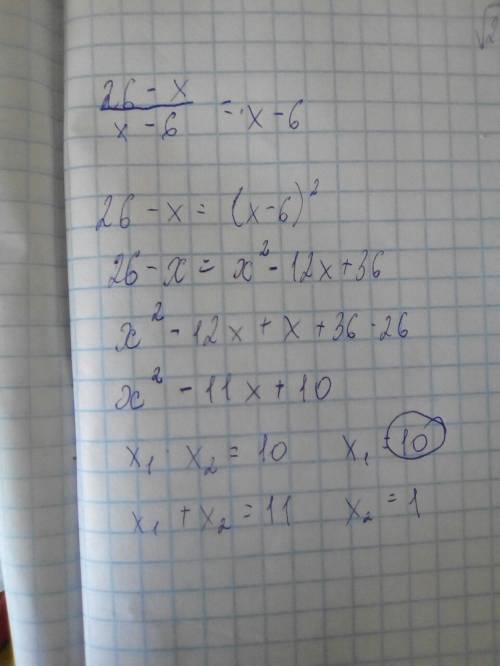 √2
26 - x / x - 6 = x - 6
26 - x = (x-6)²
26 - x = x² - 12x + 36
x² - 12x + x + 36 - 26
x² - 11x + 10
x₁ · x₂ = 10 x₁ = 10
x₁ + x₂ = 11 x₂ = 1